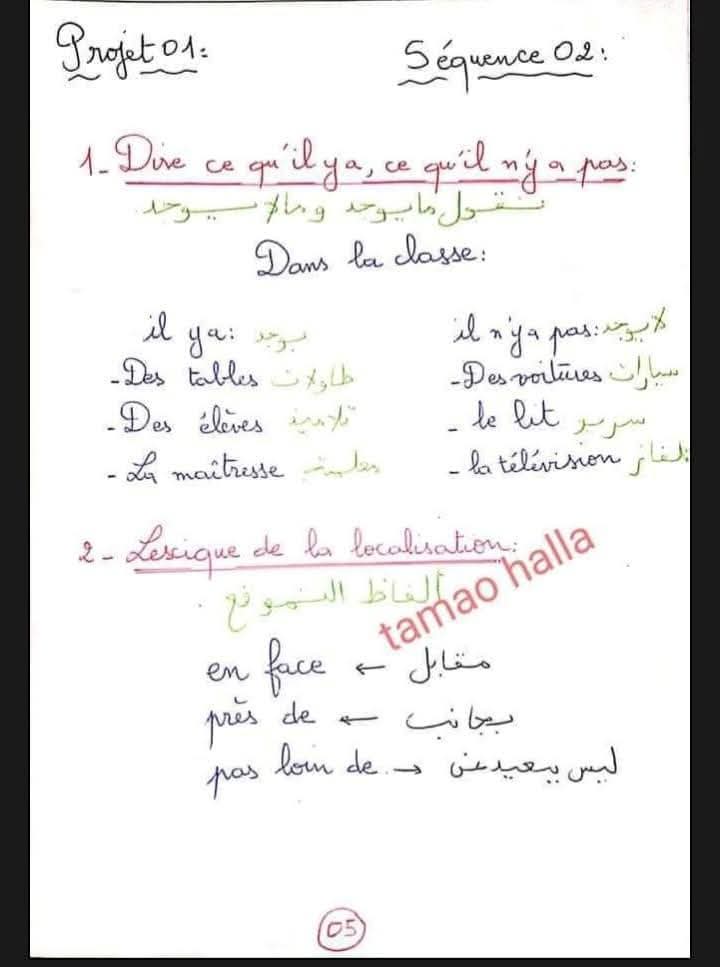 Projet 01:
Séquence 02:
1- Dire ce qu'il ya, ce qu'il n'y a pas:
نقول ما يوجد وما لا يوجد
Dans la classe:
il ya: يوجد
- Des tables طاولات
- Des élèves تلاميذ
- La maîtresse معلمة
il n'y a pas: لا يوجد
- Des voitures سيارات
- le lit سرير
- la télévision تلفاز
2- Lexique de la localisation:
ألفاظ التموقع
tamao halla
en face ← مقابل
près de ← بجانب
pas loin de → ليس ببعيد عن
05